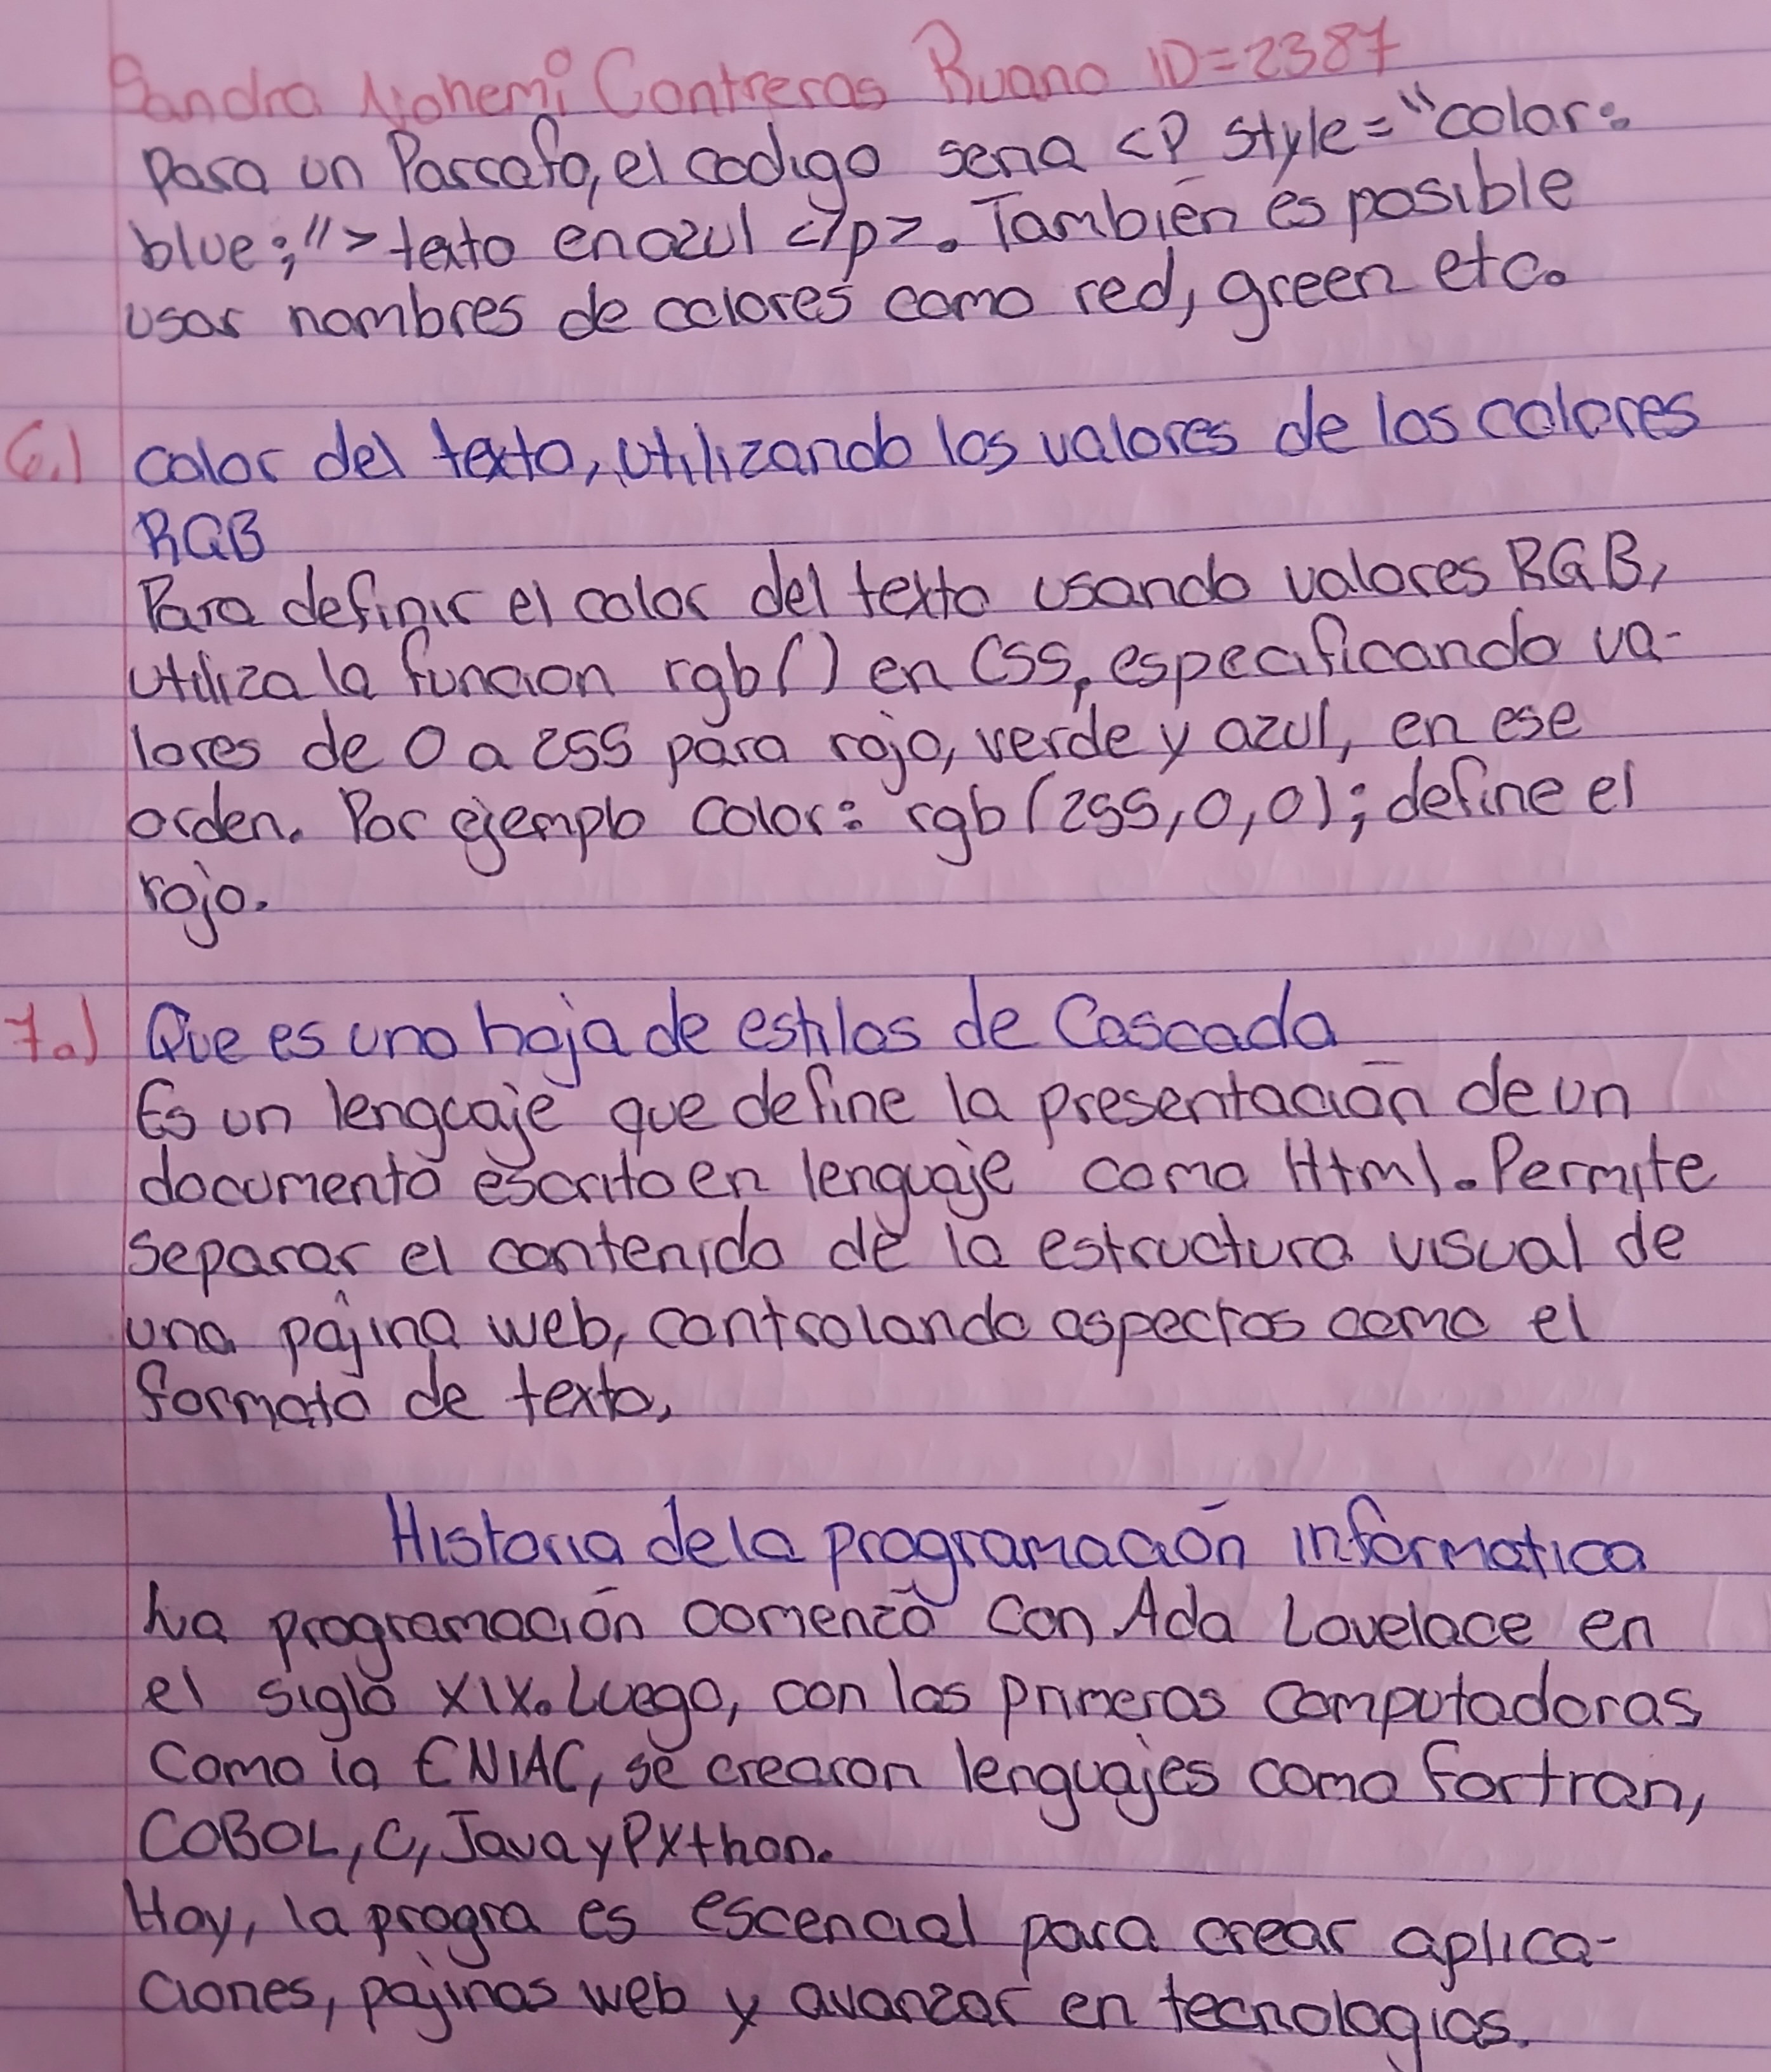 Sandra Nohemi Contreras Ruano ID=2387
para un Parrafo, el codigo seria <P style="color:
blue;"> texto en azul </p>. También es posible
usar nombres de colores como red, green etc.
6.) color del texto, utilizando los valores de los colores
RGB
Para definir el color del texto usando valores RGB,
utiliza la funcion rgb() en CSS, especificando va-
lores de 0 a 255 para rojo, verde y azul, en ese
orden. Por ejemplo color: rgb(255,0,0); define el
rojo.
7.) Que es una hoja de estilos de Cascada
Es un lenguaje que define la presentación de un
documento escrito en lenguaje como Html. Permite
separar el contenido de la estructura visual de
una pajina web, controlando aspectos como el
formato de texto,
Historia de la programación informatica
La programación comenzó con Ada Lovelace en
el siglo XIX. Luego, con las primeras computadoras
como la ENIAC, se crearon lenguajes como Fortran,
COBOL, C, Java y PYthon.
Hoy, la progra es escencial para crear aplica-
ciones, pajinas web y avanzar en tecnologias.